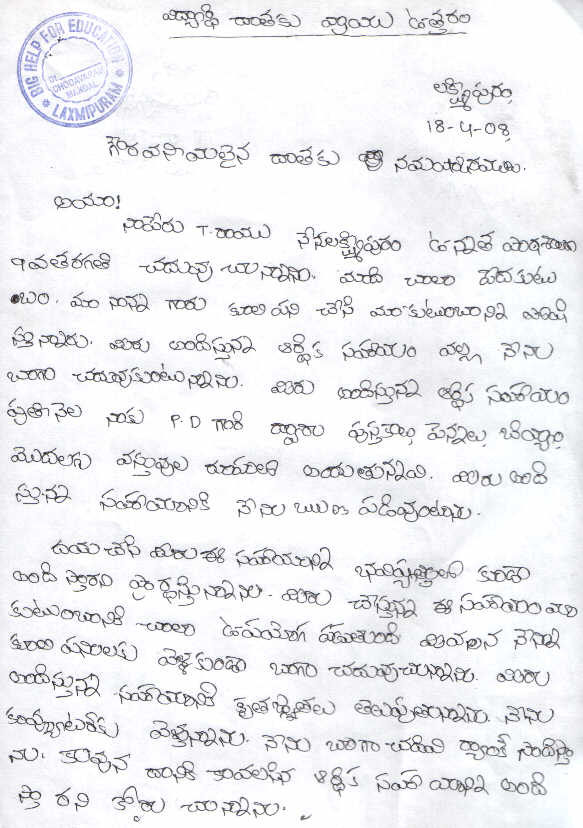 విద్యార్థి దాతకు వ్రాయు ఉత్తరం
BIG HELP FOR EDUCATION
CHODAVARAM
MANDAL
LAXMIPURAM
లక్ష్మీపురం,
18-4-08,
గౌరవనీయులైన దాతకు నమస్కారములు.
అయ్యా!
నాపేరు T. రాము నేను లక్ష్మీపురం ఉన్నత పాఠశాలలో
9వతరగతి చదువు చున్నాను. మాది చాలా పేదకుటు
బం. మా నాన్న గారు కూలిపని చేసి మా కుటుంబాన్ని పోషి
స్తున్నారు. మీరు అందిస్తున్న ఆర్థిక సహాయం వల్ల నేను
బాగా చదువుకుంటున్నాను. మీరు అందిస్తున్న ఆర్థిక సహాయం
ప్రతినెల నాకు P.D గారి ద్వారా పుస్తకాలు, పెన్నులు, బియ్యం,
మొదలగు వస్తువుల రూపంలో అందుతున్నాయి. మీరు అంది
స్తున్న సహాయానికి నేను ఋణ పడివుంటాను.
దయచేసి మీరు ఈ సహాయాన్ని భవిష్యత్తులో కూడా
అందిస్తారని ప్రార్థిస్తున్నాను. మీరు చేస్తున్న ఈ సహాయం మా
కుటుంబానికి చాలా ఉపయోగ పడుతుంది నేను
కూలి పనులకు వెళ్ళకుండా బాగా చదువుచున్నాను. మీరు
అందిస్తున్న సహాయానికి కృతజ్ఞతలు తెలుపుతున్నాను. నేను
కంప్యూటర్‌కు వెళ్తున్నాను. నేను బాగా చదివి ర్యాంక్ సాధిస్తా
ను. కావున దానికి కావలసిన ఆర్థిక సహాయాన్ని అంది
స్తారని కోరు చున్నాను.